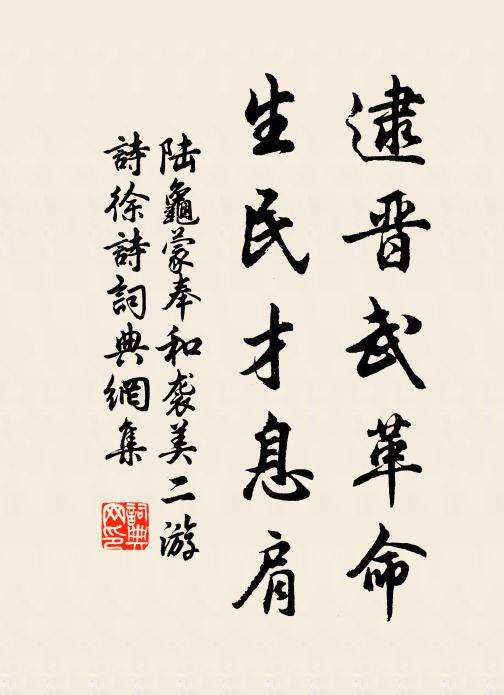 逮晋武革命
生民才息肩
陆龜蒙奉和袭美二游
詩徐詩詞典網集
詞典网印